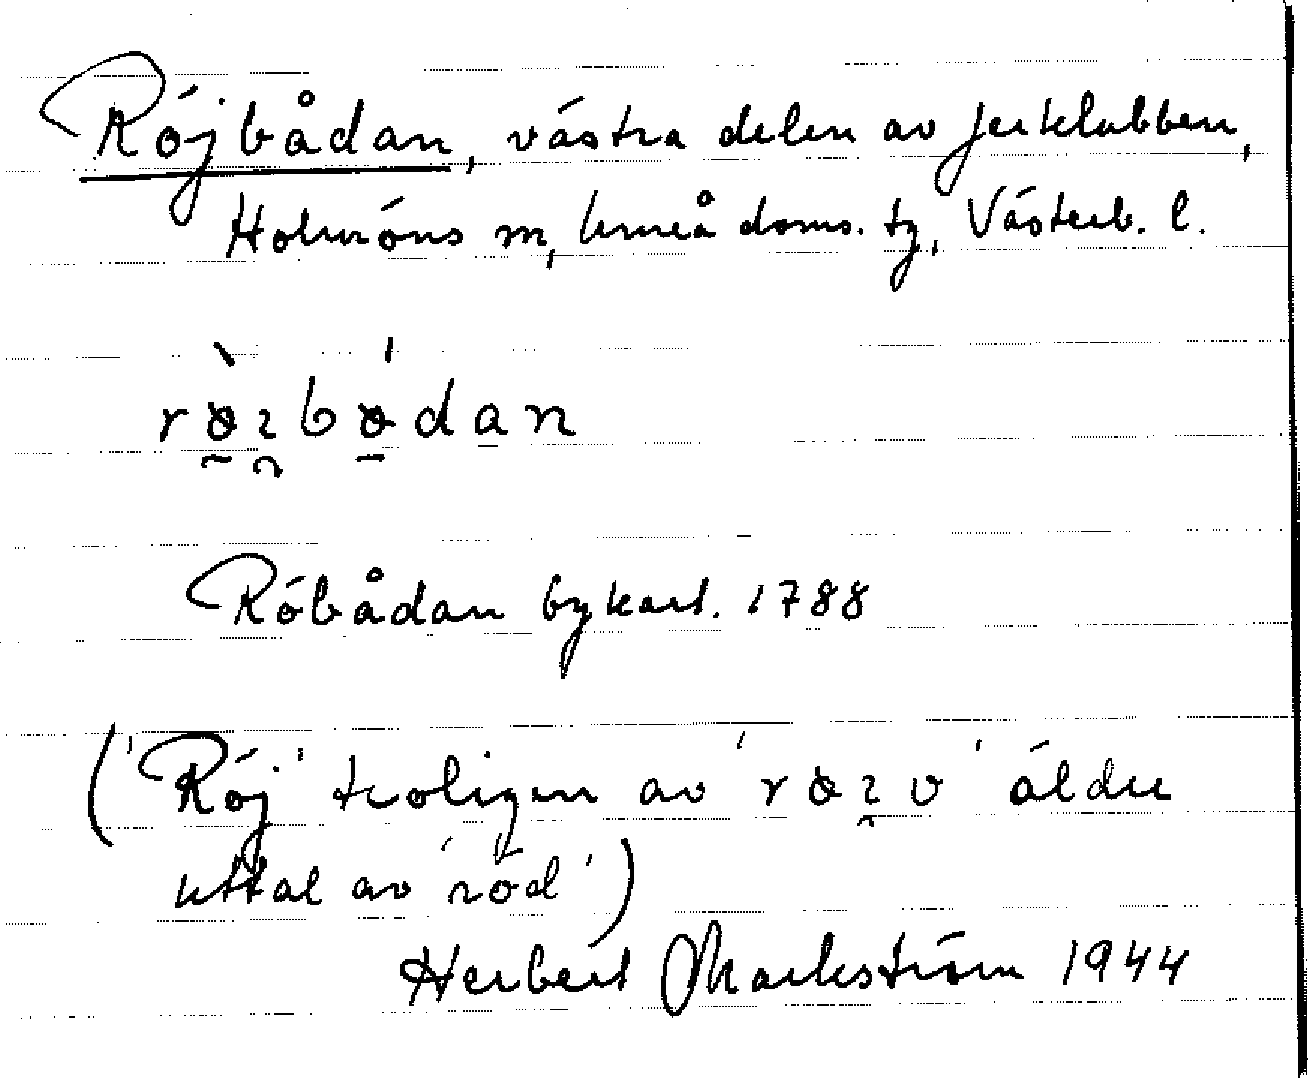 Röjbådan, västra delen av Jerklubben,
Holmöns sn, Umeå doms. tg, Västerb. l.
Röbådan bykart. 1788
('Röj' troligen av äldre
uttal av 'röd')
Herbert Markström 1944